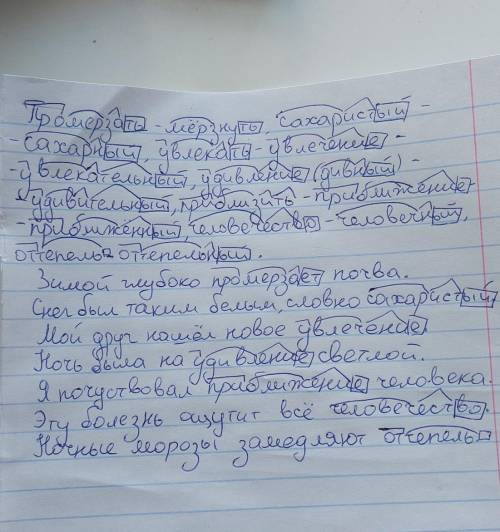 Промерзать - мёрзнуть, сахаристый -
- сахарный, увлекать - увлечение -
- увлекательный, удивление (дивный) -
- удивительный, приблизить - приближение -
- приближённый, человечество - человечный,
оттепель - оттепельный.
Зимой глубоко промерзает почва.
Снег был таким белым, словно сахаристый
Мой друг нашёл новое увлечение
Ночь была на удивление светлой.
Я почуствовал приближение человека.
Эту болезнь ощутит всё человечество.
Ночные морозы замедляют оттепель.